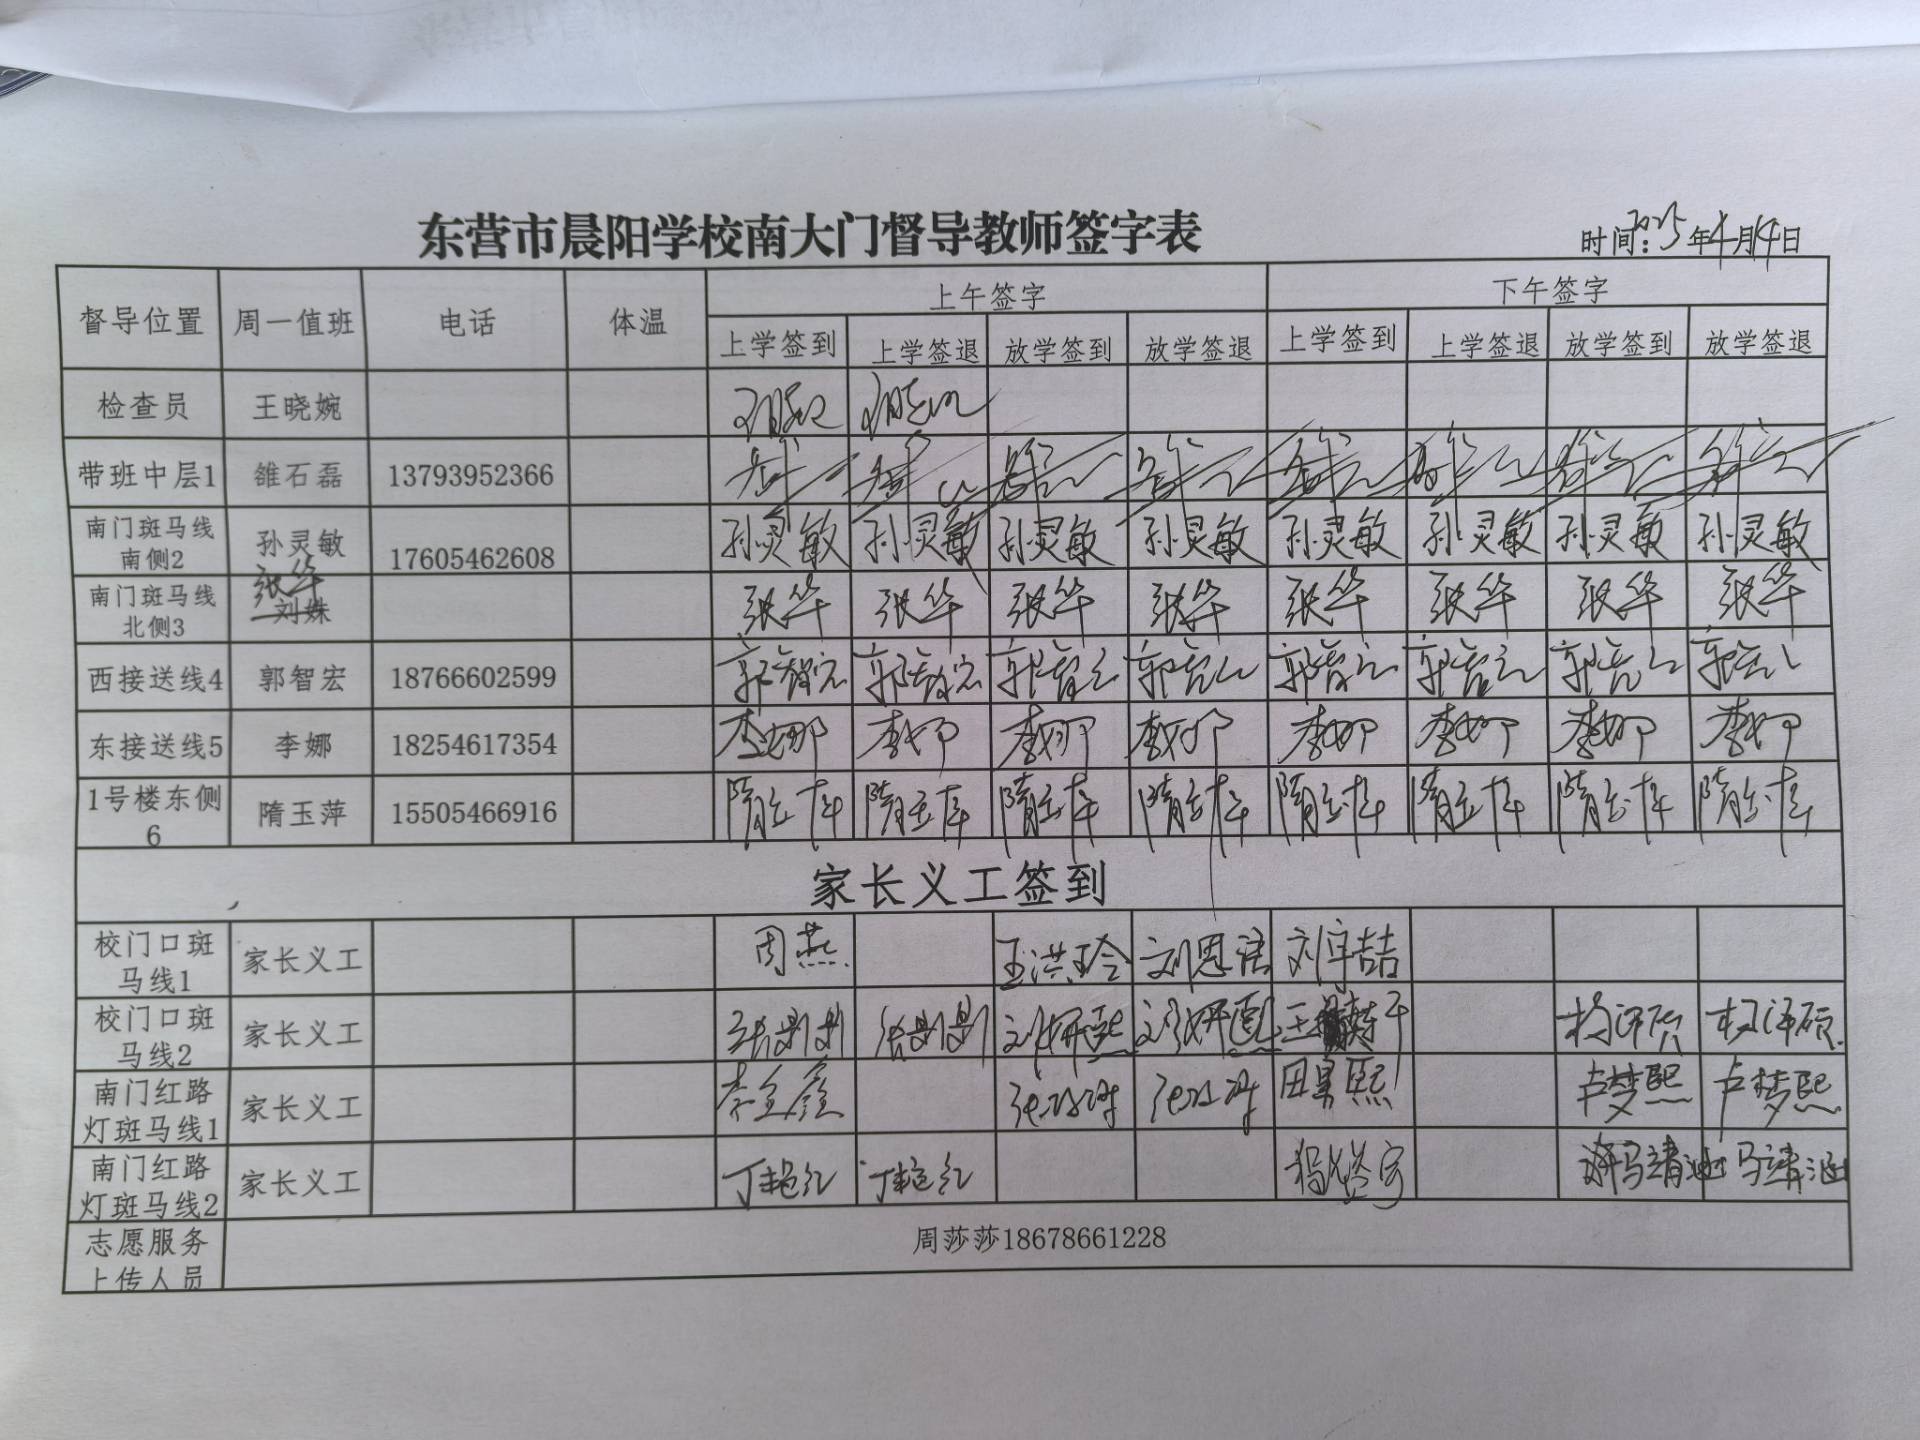 东营市晨阳学校南大门督导教师签字表
时间：2025年4月14日
督导位置 周一值班 电话 体温 上午签字 下午签字
上学签到 上学签退 放学签到 放学签退 上学签到 上学签退 放学签到 放学签退
检查员 王晓婉
带班中层1 雒石磊 13793952366
南门斑马线南侧2 孙灵敏 17605462608 孙灵敏 孙灵敏 孙灵敏 孙灵敏 孙灵敏 孙灵敏 孙灵敏 孙灵敏
南门斑马线北侧3 张华 刘姝 张华 张华 张华 张华 张华 张华 张华 张华
西接送线4 郭智宏 18766602599 郭智宏 郭智宏 郭智宏 郭智宏 郭智宏 郭智宏 郭智宏 郭智宏
东接送线5 李娜 18254617354 李娜 李娜 李娜 李娜 李娜 李娜 李娜 李娜
1号楼东侧6 隋玉萍 15505466916 隋玉萍 隋玉萍 隋玉萍 隋玉萍 隋玉萍 隋玉萍 隋玉萍 隋玉萍
家长义工签到
校门口斑马线1 家长义工 周燕 王洪玲 刘恩浩 刘宇喆
校门口斑马线2 家长义工
南门红路灯斑马线1 家长义工 李金鑫 田昊熙 卢梦熙 卢梦熙
南门红路灯斑马线2 家长义工 丁艳红 丁艳红 马靖涵 马靖涵
志愿服务上传人员 周莎莎18678661228